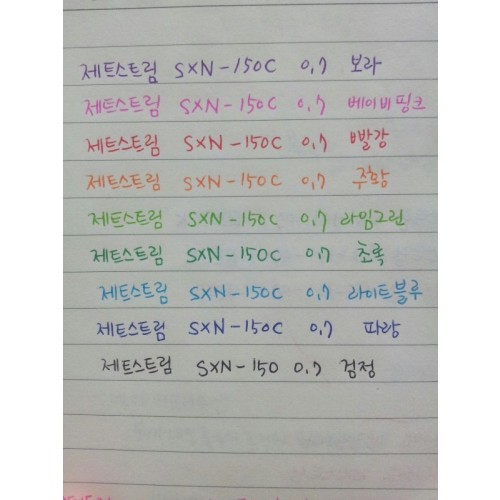 제트스트림 SXN-150C 0.7 보라
제트스트림 SXN-150C 0.7 베이비핑크
제트스트림 SXN-150C 0.7 빨강
제트스트림 SXN-150C 0.7 주황
제트스트림 SXN-150C 0.7 라임그린
제트스트림 SXN-150C 0.7 초록
제트스트림 SXN-150C 0.7 라이트블루
제트스트림 SXN-150C 0.7 파랑
제트스트림 SXN-150 0.7 검정